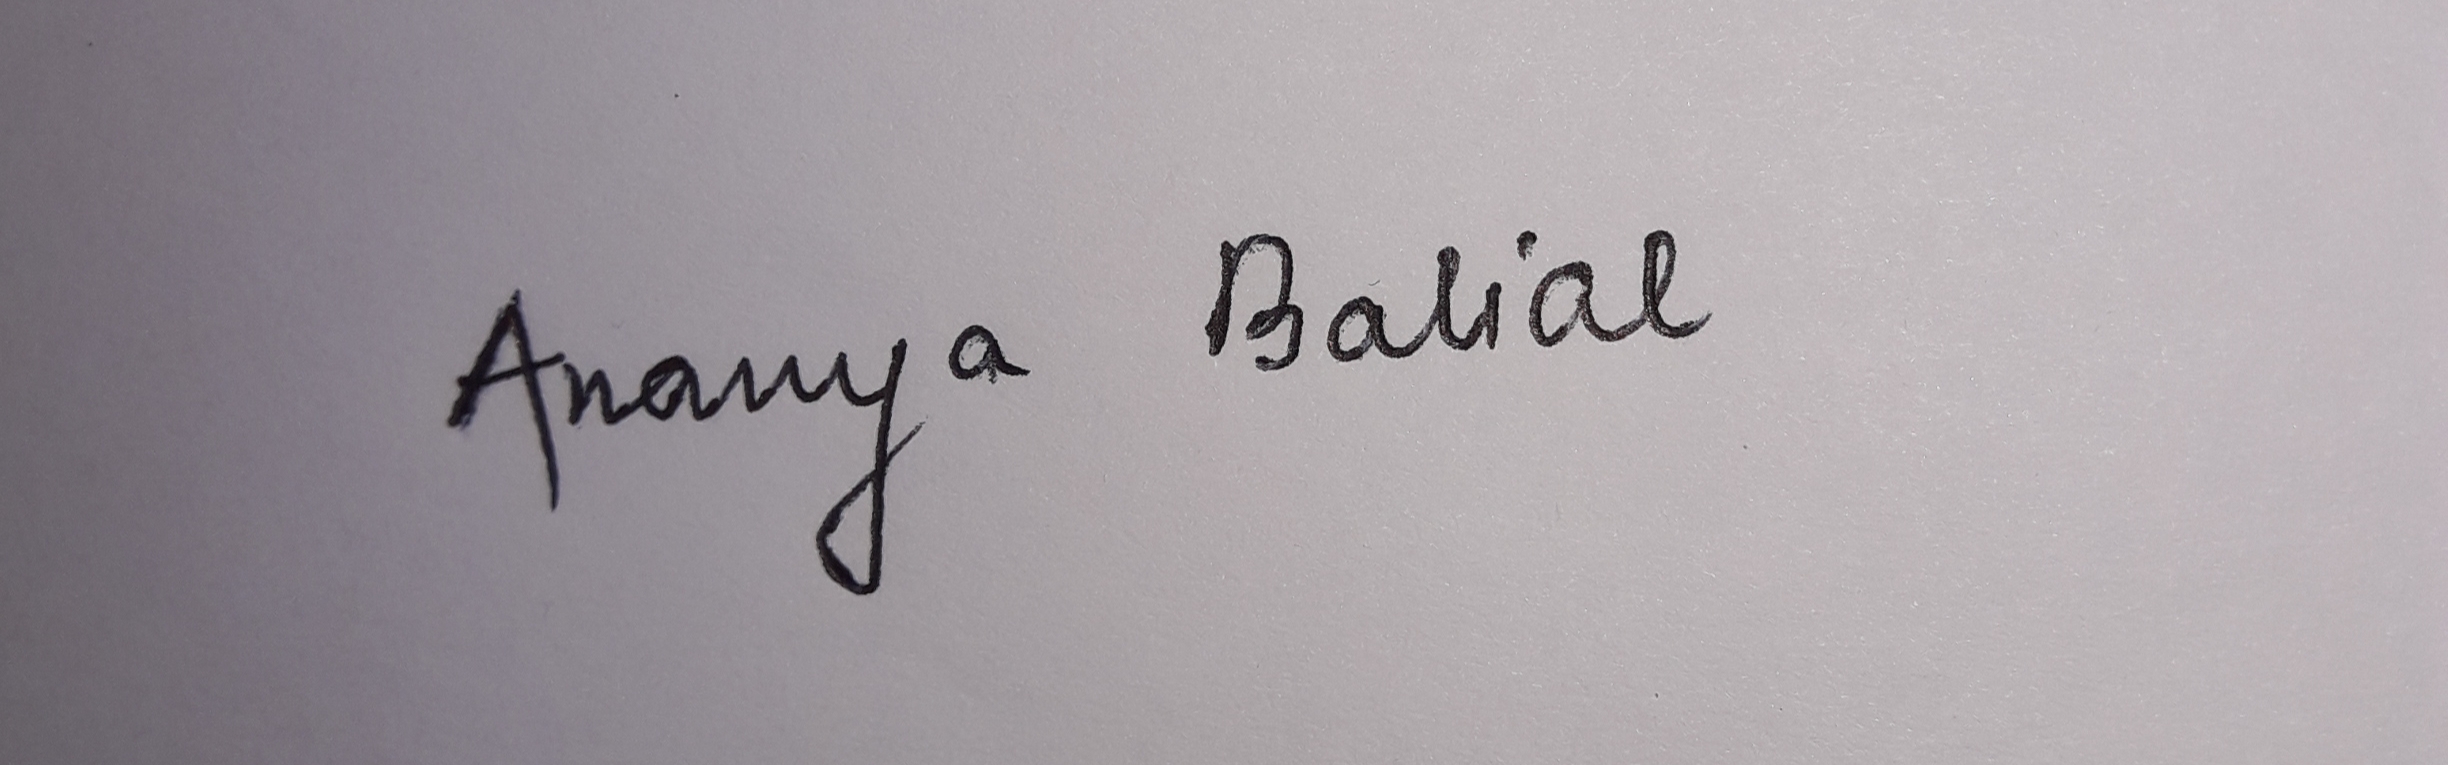 Ananya Balial